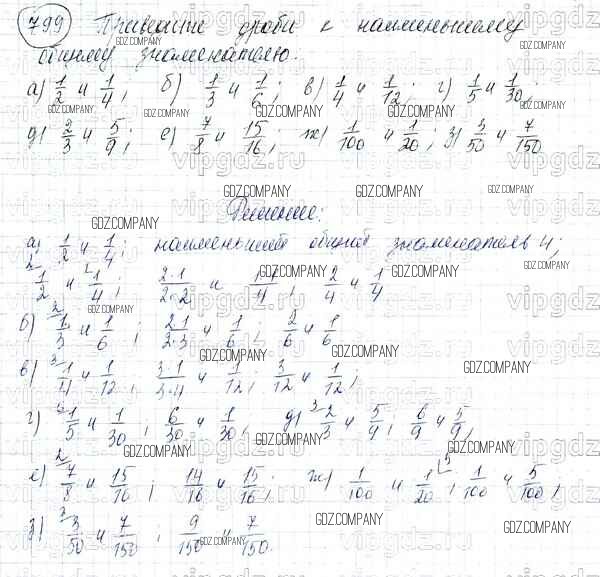 799 Привести дроби к наименьшему
общему знаменателю:
а) 1/2 и 1/4; б) 1/3 и 1/6; в) 1/4 и 1/12; г) 1/5 и 1/30;
д) 2/3 и 5/9; е) 7/8 и 15/16; ж) 1/100 и 1/20; з) 3/50 и 7/150
Решение:
а) 1/2 и 1/4; наименьший общий знаменатель 4;
1/2 и 1/4; 2·1/2·2 и 1/4; 2/4 и 1/4
б) 1/3 и 1/6; 2·1/2·3 и 1/6; 2/6 и 1/6
в) 1/4 и 1/12; 3·1/3·4 и 1/12; 3/12 и 1/12;
г) 1/5 и 1/30; 6/30 и 1/30; д) 2/3 и 5/9; 6/9 и 5/9;
е) 7/8 и 15/16; 14/16 и 15/16; ж) 1/100 и 1/20; 1/100 и 5/100;
з) 3/50 и 7/150; 9/150 и 7/150.
GDZ.COMPANY
vipgdz.ru